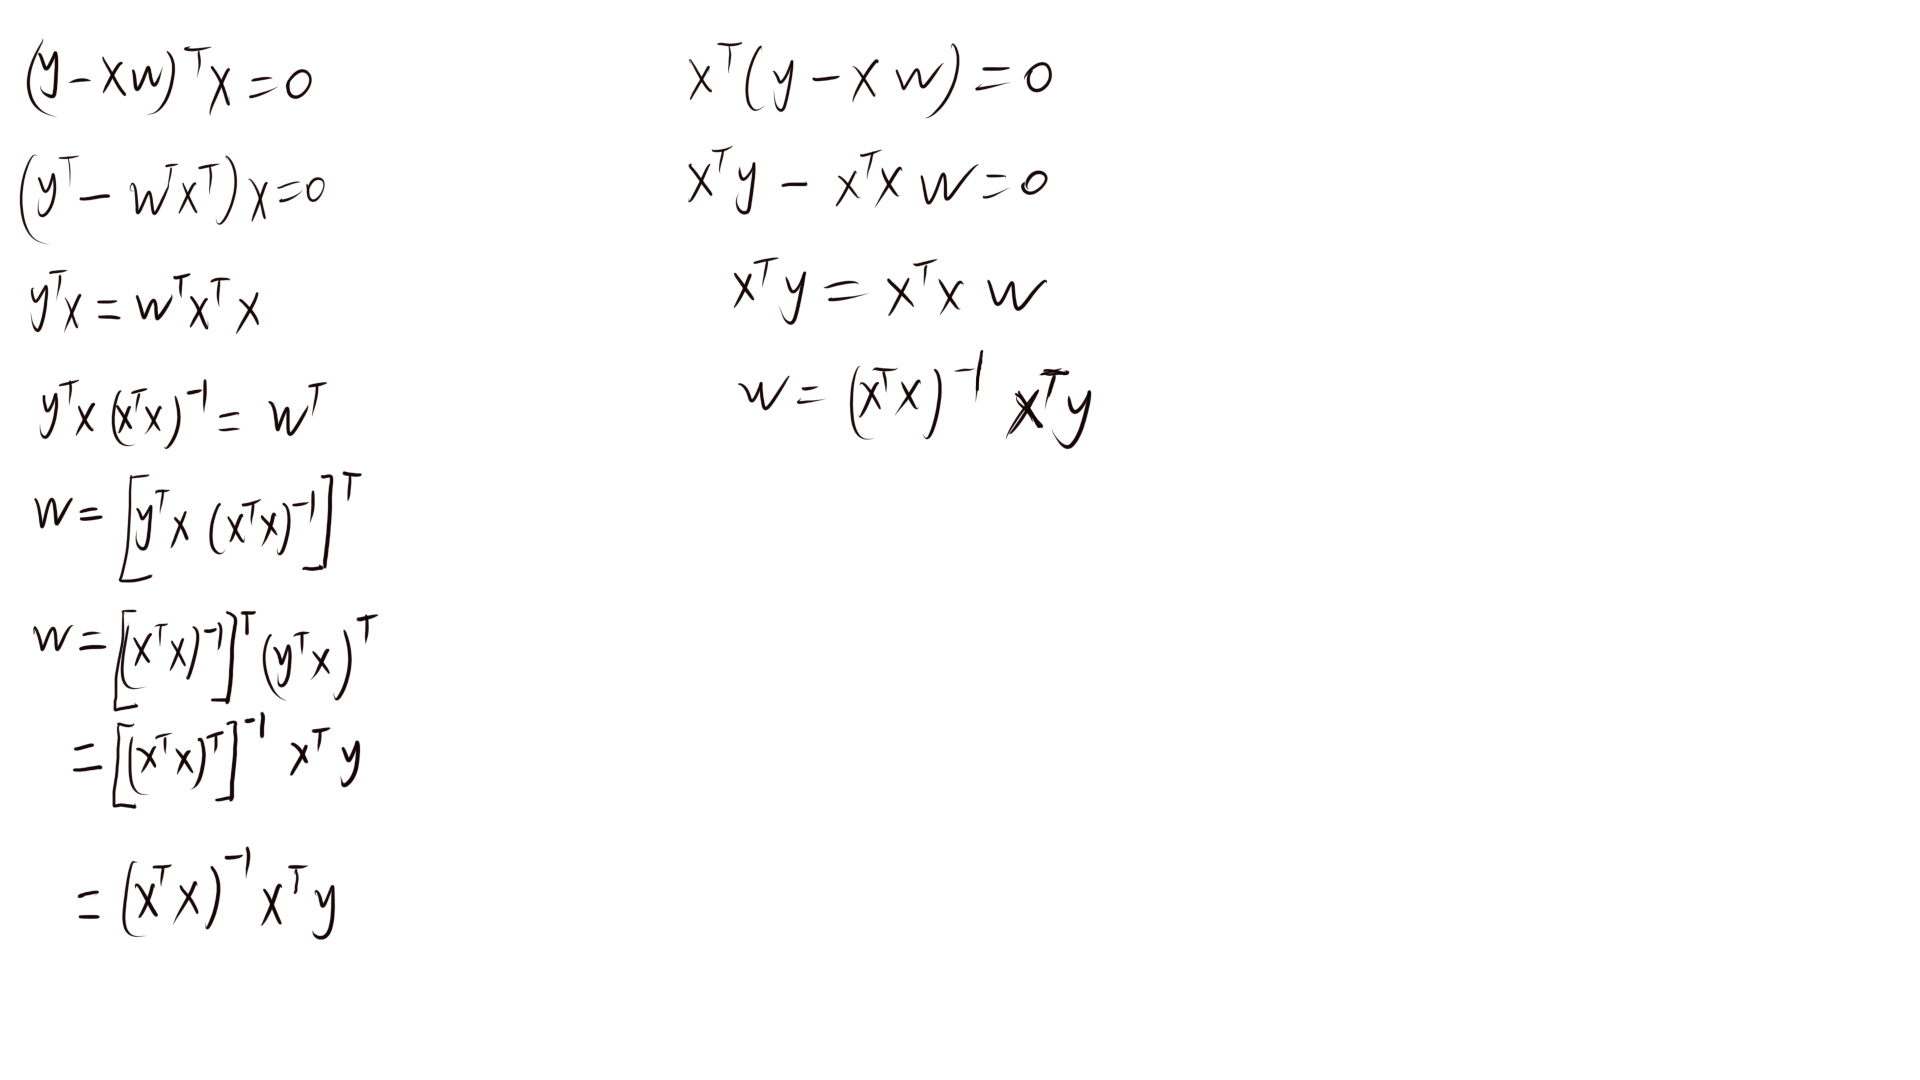 (y-xw)ᵀx=0
(yᵀ-wᵀxᵀ)x=0
yᵀx=wᵀxᵀx
yᵀx(xᵀx)⁻¹=wᵀ
w=[yᵀx(xᵀx)⁻¹]ᵀ
w=[(xᵀx)⁻¹]ᵀ(yᵀx)ᵀ
=[(xᵀx)ᵀ]⁻¹xᵀy
=(xᵀx)⁻¹xᵀy
xᵀ(y-xw)=0
xᵀy-xᵀxw=0
xᵀy=xᵀxw
w=(xᵀx)⁻¹xᵀy